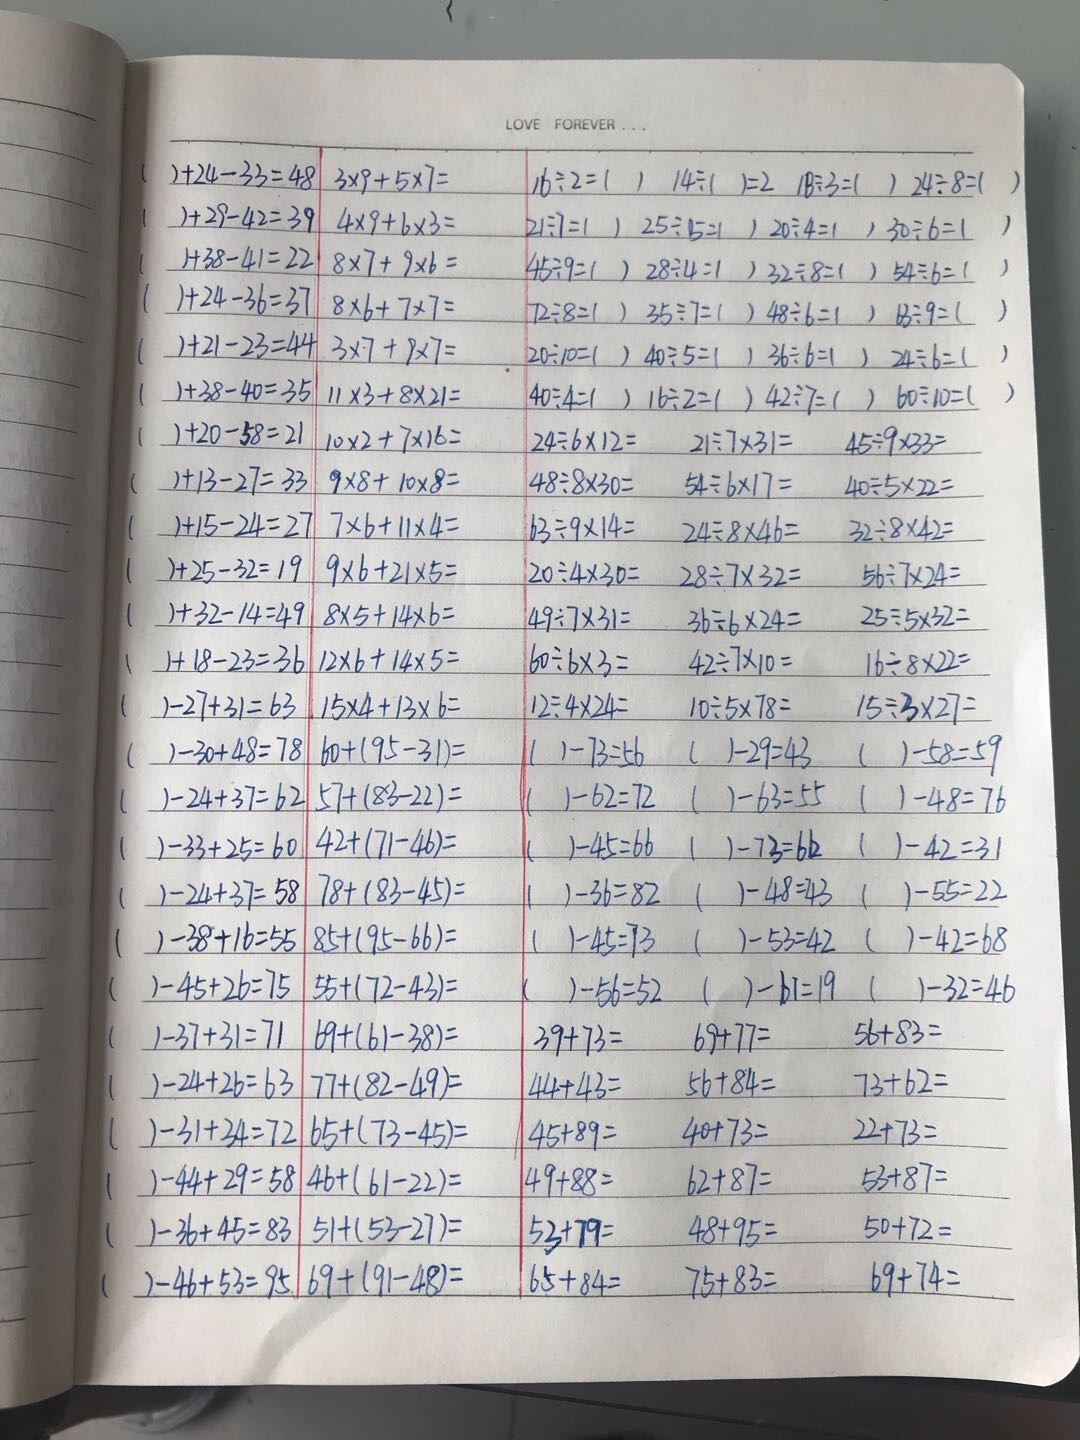 LOVE FOREVER...
( )+24-33=48 3×9+5×7= 16÷2=( ) 14÷( )=2 18÷3=( ) 24÷8=( )
( )+29-42=39 4×9+6×3= 21÷7=( ) 25÷5=( ) 20÷4=( ) 30÷6=( )
( )+38-41=22 8×7+9×6= 45÷9=( ) 28÷4=( ) 32÷8=( ) 54÷6=( )
( )+24-36=37 8×6+7×7= 72÷8=( ) 35÷7=( ) 48÷6=( ) 63÷9=( )
( )+21-23=44 3×7+9×7= 20÷10=( ) 40÷5=( ) 36÷6=( ) 24÷6=( )
( )+38-40=35 11×3+8×21= 40÷4=( ) 16÷2=( ) 42÷7=( ) 60÷10=( )
( )+20-58=21 10×2+7×16= 24÷6×12= 21÷7×31= 45÷9×33=
( )+13-27=33 9×8+10×8= 48÷8×30= 54÷6×17= 40÷5×22=
( )+15-24=27 7×6+11×4= 63÷9×14= 24÷8×46= 32÷8×42=
( )+25-32=19 9×6+21×5= 20÷4×30= 28÷7×32= 56÷7×24=
( )+32-14=49 8×5+14×6= 49÷7×31= 36÷6×24= 25÷5×32=
( )+18-23=36 12×6+14×5= 60÷6×3= 42÷7×10= 16÷8×22=
( )-27+31=63 15×4+13×6= 12÷4×24= 10÷5×78= 15÷3×27=
( )-30+48=78 60+(95-31)= ( )-73=56 ( )-29=43 ( )-58=59
( )-24+37=62 57+(83-22)= ( )-62=72 ( )-63=55 ( )-48=76
( )-33+25=60 42+(71-46)= ( )-45=66 ( )-73=62 ( )-42=31
( )-24+37=58 78+(83-45)= ( )-36=82 ( )-48=43 ( )-55=22
( )-38+16=55 85+(95-66)= ( )-45=73 ( )-53=42 ( )-42=68
( )-45+26=75 55+(72-43)= ( )-56=52 ( )-67=19 ( )-32=46
( )-37+31=71 69+(61-38)= 39+73= 69+77= 56+83=
( )-24+26=63 77+(82-49)= 44+43= 56+84= 73+62=
( )-31+34=72 65+(73-45)= 45+89= 40+73= 22+73=
( )-44+29=58 46+(61-22)= 49+88= 62+87= 53+87=
( )-36+45=83 51+(53-27)= 53+79= 48+95= 50+72=
( )-46+53=95 69+(91-48)= 65+84= 75+83= 69+74=